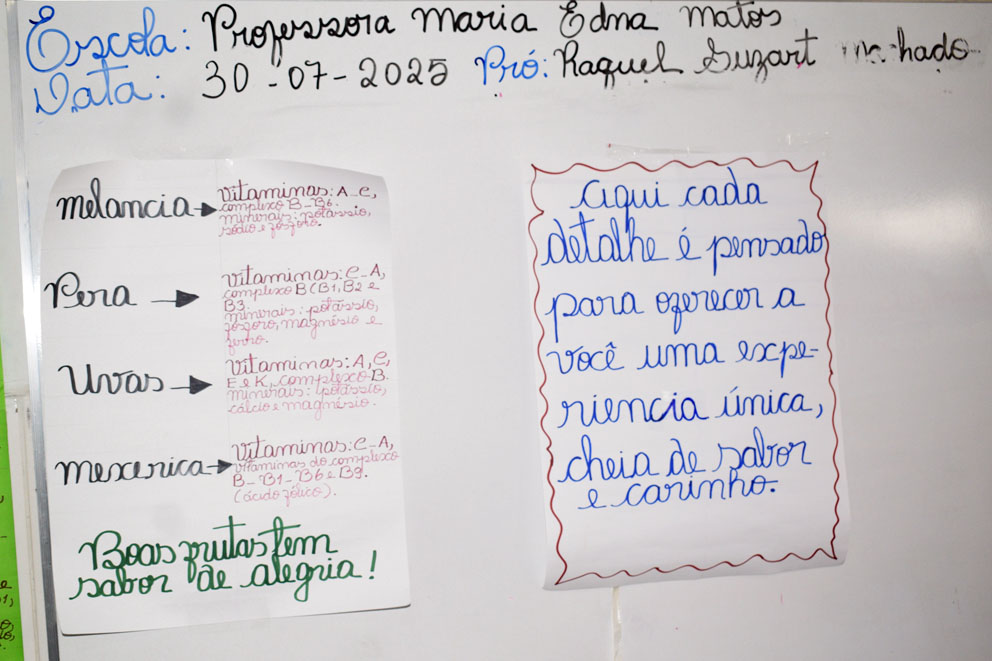 Escola: Professora Maria Edna Matos
Data: 30-07-2025 Pró: Raquel Suzart
melancia → Vitaminas: A_C,
complexo B_B6.
minerais: potássio,
sódio e fósforo.
Pera → Vitaminas: C_A,
complexo B (B1, B2 e
B3.
minerais: potássio,
fósforo, magnésio e
ferro.
Uvas → Vitaminas: A, C,
E e K, complexo B.
minerais: potássio,
cálcio e magnésio.
mexerica → Vitaminas: C_A,
vitaminas do complexo
B_B1_B6 e B9.
(ácido fólico).
Boas frutas tem
sabor de alegria!
Aqui cada
detalhe é pensado
para oferecer a
você uma expe-
riencia única,
cheia de sabor
e carinho.